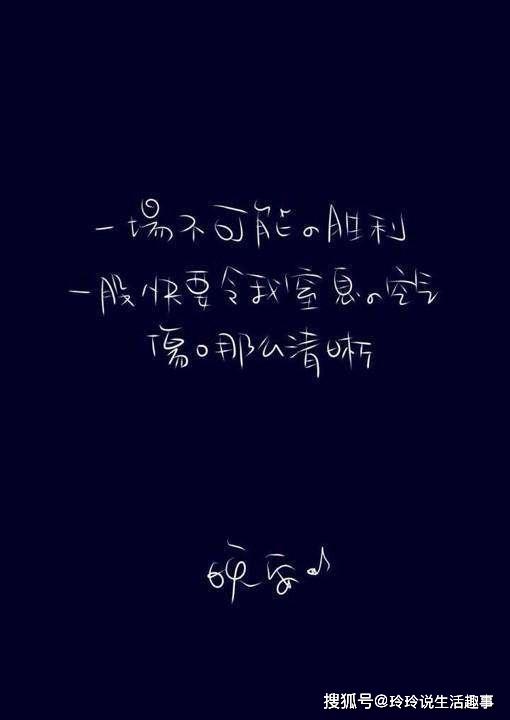 一場不可能の胜利
一股快要令我窒息の空气
傷口那么清晰
晚安♪
搜狐号@玲玲说生活趣事